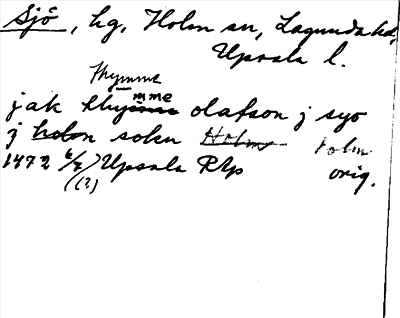 Sjö, hg, Holm sn, Lagunda hd,
Uppsala l.
Thymme
mme
jak thymme olafson j syo
j holm sokn Holm Holm
1472 6/7 Uppsala RAp orig.
(?)